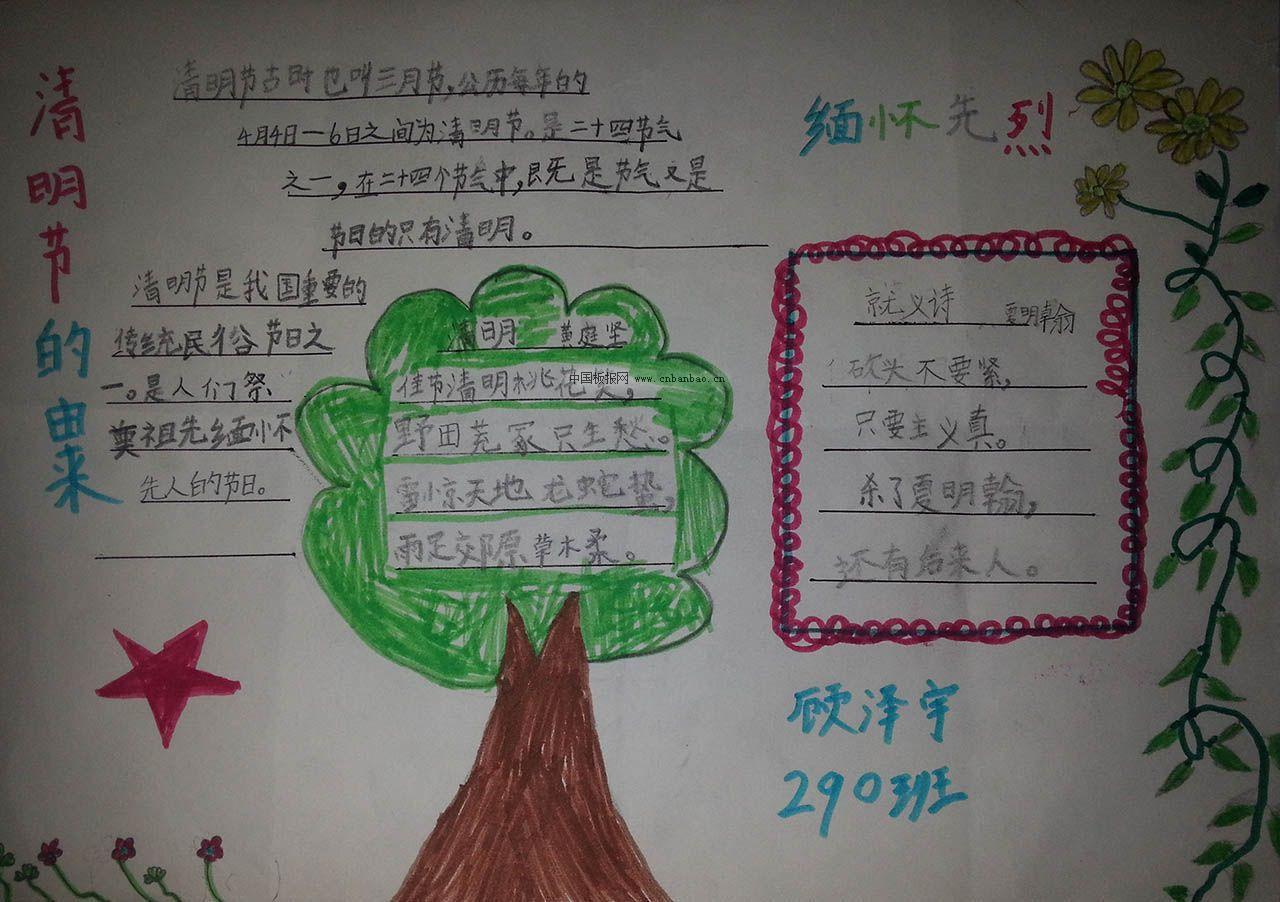 清明节的由来
清明节古时也叫三月节,公历每年的
4月4日—6日之间为清明节。是二十四节气
之一,在二十四个节气中,既是节气又是
节日的只有清明。
清明节是我国重要的
传统民俗节日之
一。是人们祭
奠祖先缅怀
先人的节日。
清明 黄庭坚
佳节清明桃花笑,
中国板报网 www.cnbanbao.cn
野田荒冢只生愁。
雪惊天地龙蛇蛰,
雨足郊原草木柔。
缅怀先烈
就义诗 夏明翰
砍头不要紧,
只要主义真。
杀了夏明翰,
还有后来人。
顾泽宇
290班